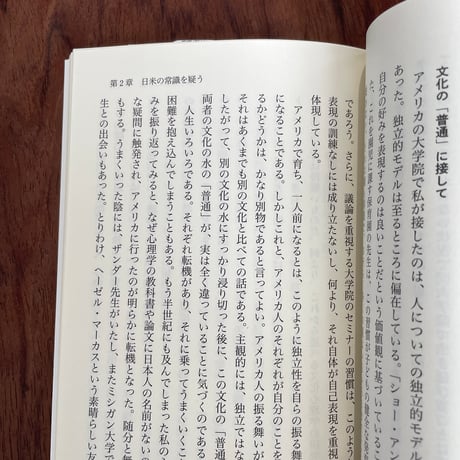 文化の「普通」に接して
アメリカの大学院で私が接したのは、人についての独立的モデ
あった。独立的モデルは至るところに偏在している。「ショー・アン
自分の好みを表現するのは良いことだという価値観に基づいている
た、これを園児に課す保育園の先生は、この習慣が子どもの健全な
第2章 日米の常識を疑う
であろう。さらに、議論を重視する大学院のセミナーの習慣は、このよう
表現の訓練なしには成り立たないし、何より、それ自体が自己表現を重視
体現している。
アメリカで育ち、一人前になるとは、このように独立性を自らの振る舞い
になることである。しかしこれと、アメリカ人のそれぞれが自分のことを
るかどうかは、かなり別物であると言ってよい。アメリカ人の振る舞いが
それはあくまでも別の文化と比べての話である。主観的には、独立ではな
したがって、別の文化の水にすっかり浸り切った後に、この文化の「普通
両者の文化の水の「普通」が、実は全く違っていることに気づくのである
人生いろいろである。それぞれ転機があり、それに乗ってうまくいくこ
困難を抱え込んでしまうこともある。もう半世紀にも及んでしまった私の
みを振り返ってみると、なぜ心理学の教科書や論文に日本人の名前がない
な疑問に触発され、アメリカに行ったのが明らかに転機となった。随分と無
もする。うまくいった陰には、ザンダー先生がいたし、またミシガン大学で
生との出会いもあった。とりわけ、ヘーゼル・マーカスという素晴らしい友